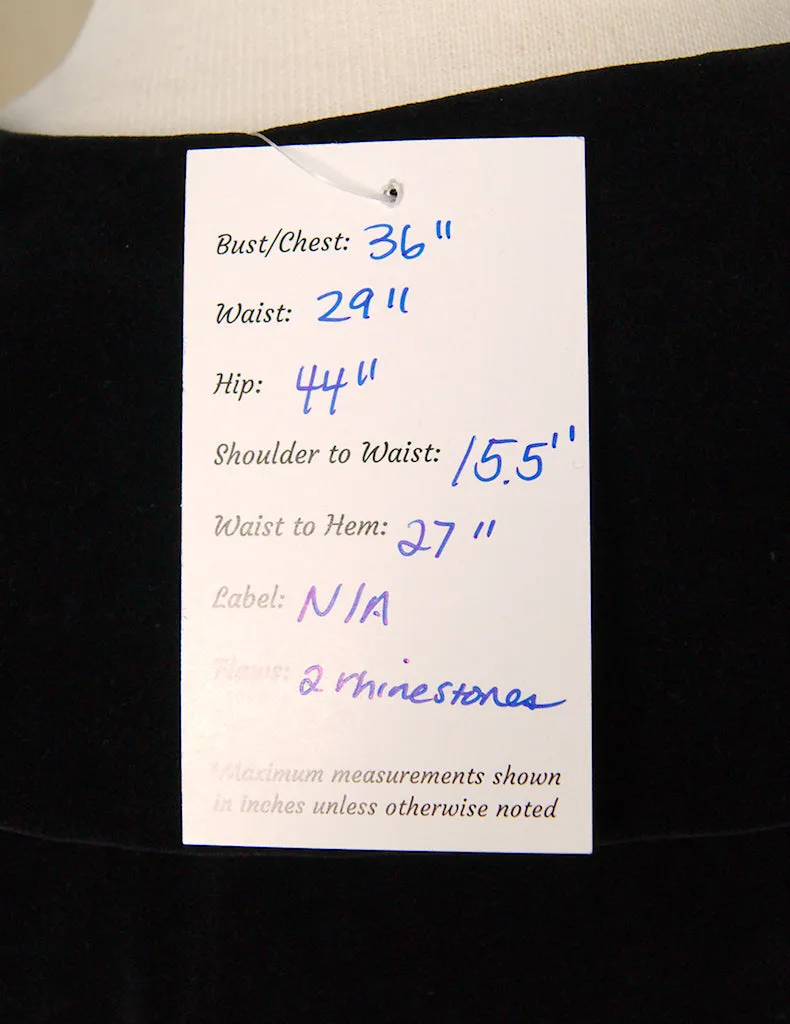 Bust/Chest: 36"
Waist: 29"
Hip: 44"
Shoulder to Waist: 15.5"
Waist to Hem: 27"
Label: N/A
Flaws: 2 rhinestones
*Maximum measurements shown
in inches unless otherwise noted